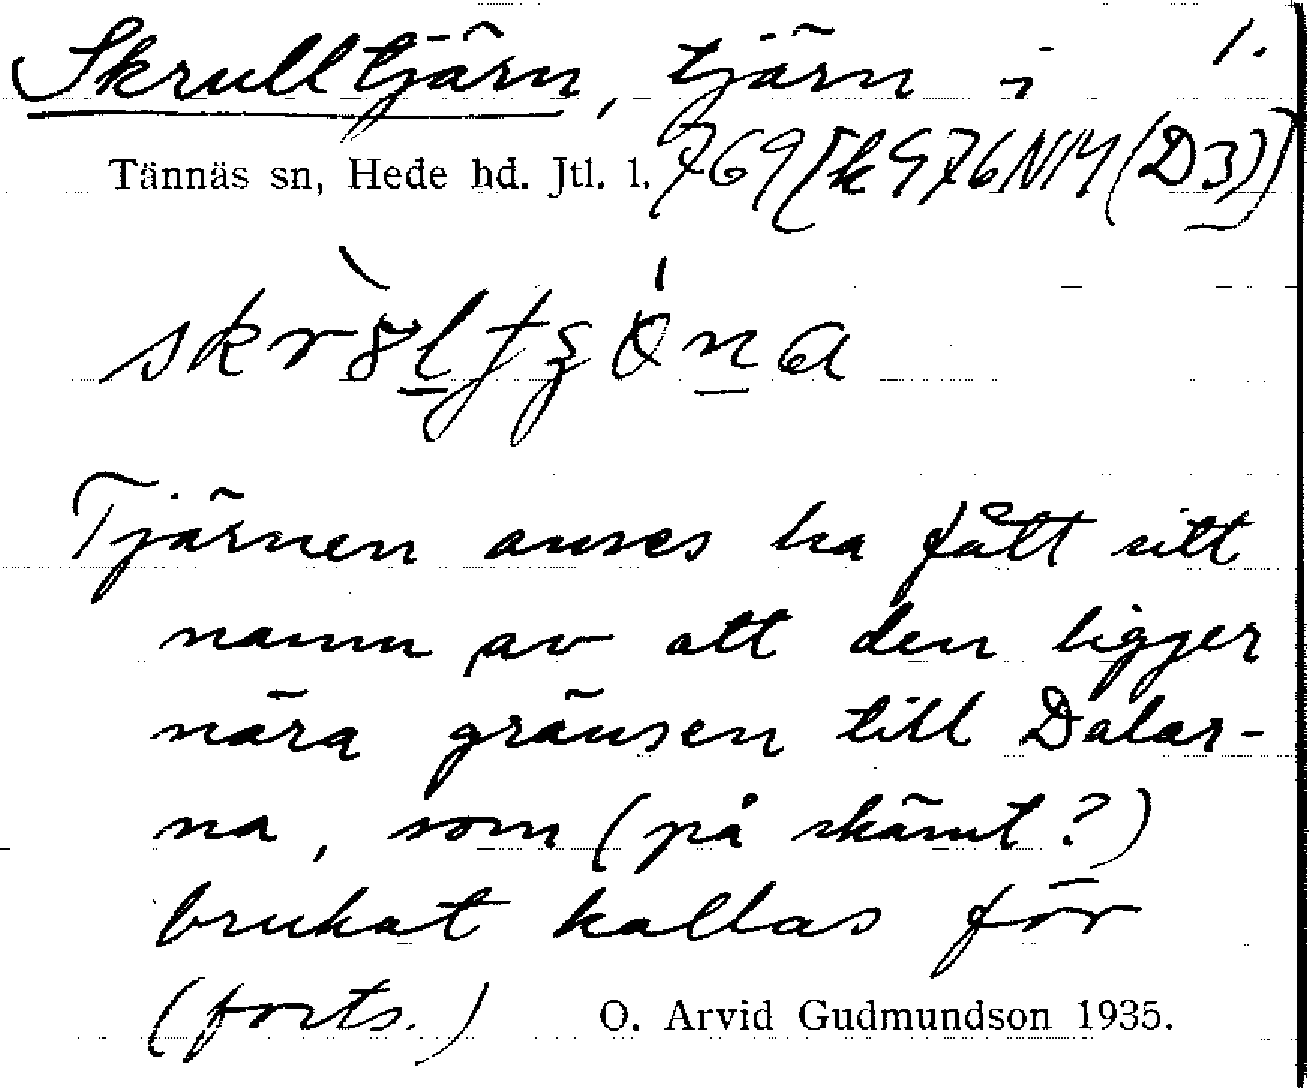 Skrulltjärn, tjärn i 1.
Tännäs sn, Hede hd. Jtl. l. 769[k976NM(D3)]
Tjärnen anses ha fått sitt
namn av att den ligger
nära gränsen till Dalar-
na, som (på skämt?)
brukat kallas för
(forts.) O. Arvid Gudmundson 1935.